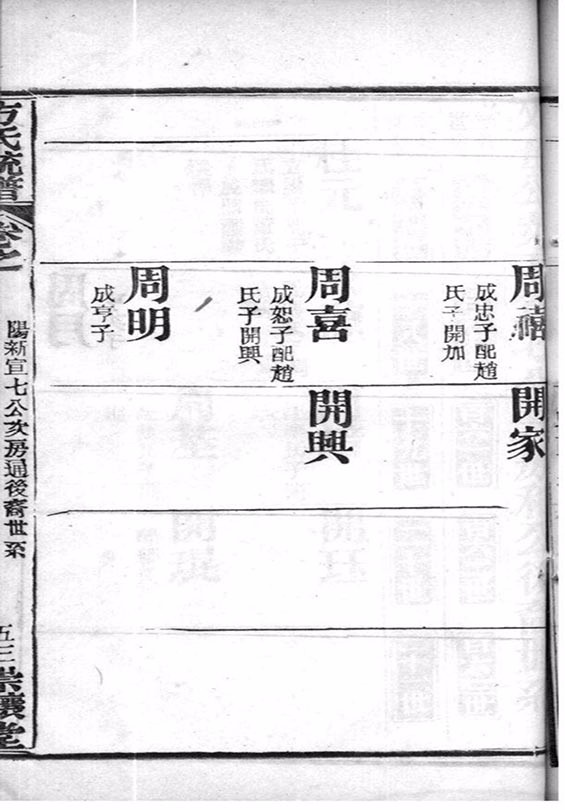 周禧
成忠子配趙
氏子開加
開家
周喜
成恕子配趙
氏子開興
開興
周明
成亨子
方氏統譜
卷之
陽新宣七公亥房通後裔世系
五三
堂